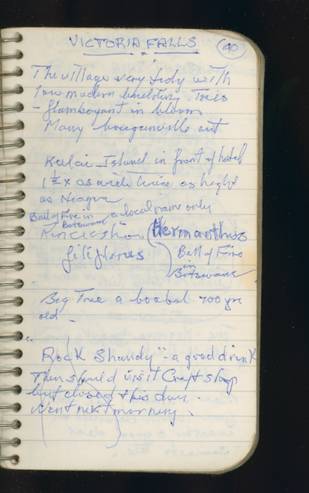 VICTORIA FALLS 40
The village very tidy with
low modern buildings. Trees
- flamboyant in bloom
Many bougainvillea out
Island in front of hotel
1½ x as wide twice as height
as Niagra
Ball of Fire in Botswana a local name only
Haemanthus
Ball of Fire
in
Botswana
Big Tree a boabal 700 yrs
old -
"Rock Shandy" - a good drink
Then should visit Craft shop
but closed this time.
Went next morning.